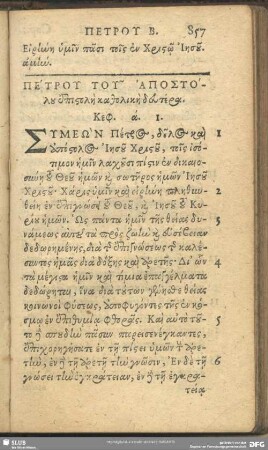 ΠΕΤΡΟΥ Β. 857
Εἰρήνη ὑμῖν πᾶσι τοῖς ἐν Χριστῷ Ἰησοῦ.
ἀμήν.
ΠΕΤΡΟΥ ΤΟΥ ἈΠΟΣΤΟ-
λου ἐπιστολὴ καθολικὴ δευτέρα.
Κεφ. ά. 1.
ΣΥΜΕΩΝ Πέτρος, δοῦλος καὶ 1
ἀπόστολος Ἰησοῦ Χριστοῦ, τοῖς ἰσό-
τιμον ἡμῖν λαχοῦσι πίστιν ἐν δικαιο-
σύνῃ τοῦ Θεοῦ ἡμῶν κ̣ σωτῆρος ἡμῶν Ἰησοῦ
Χριστοῦ· Χάρις ὑμῖν καὶ εἰρήνη πληθυν- 2
θείη ἐν ἐπιγνώσει τοῦ Θεοῦ, κ̣ Ἰησοῦ τοῦ Κυ-
ρίου ἡμῶν. Ὡς πάντα ἡμῖν τῆς θείας δυ- 3
νάμεως αὐτοῦ τὰ πρὸς ζωὴν κ̣ εὐσέβειαν
δεδωρημένης, διὰ τῆς ἐπιγνώσεως τοῦ καλέ-
σαντος ἡμᾶς διὰ δόξης καὶ ἀρετῆς· Δι' ὧν 4
τὰ μέγιστα ἡμῖν καὶ τίμια ἐπαγγέλματα
δεδώρηται, ἵνα διὰ τούτων γένησθε θείας
κοινωνοὶ φύσεως, ἀποφυγόντες τῆς ἐν κό-
σμῳ ἐν ἐπιθυμίᾳ φθορᾶς. Καὶ αὐτὸ τοῦ- 5
το ἢ σπουδὴν πᾶσαν παρεισενέγκαντες,
ἐπιχορηγήσατε ἐν τῇ πίστει ὑμῶν τὴν ἀρε-
τὴν, ἐν ἢ τῇ ἀρετῇ τὴν γνῶσιν, Ἐν δὲ τῇ 6
γνώσει τὴν ἐγκράτειαν, ἐν ἢ τῇ ἐγκρα-
τείᾳ
SLUB
DFG